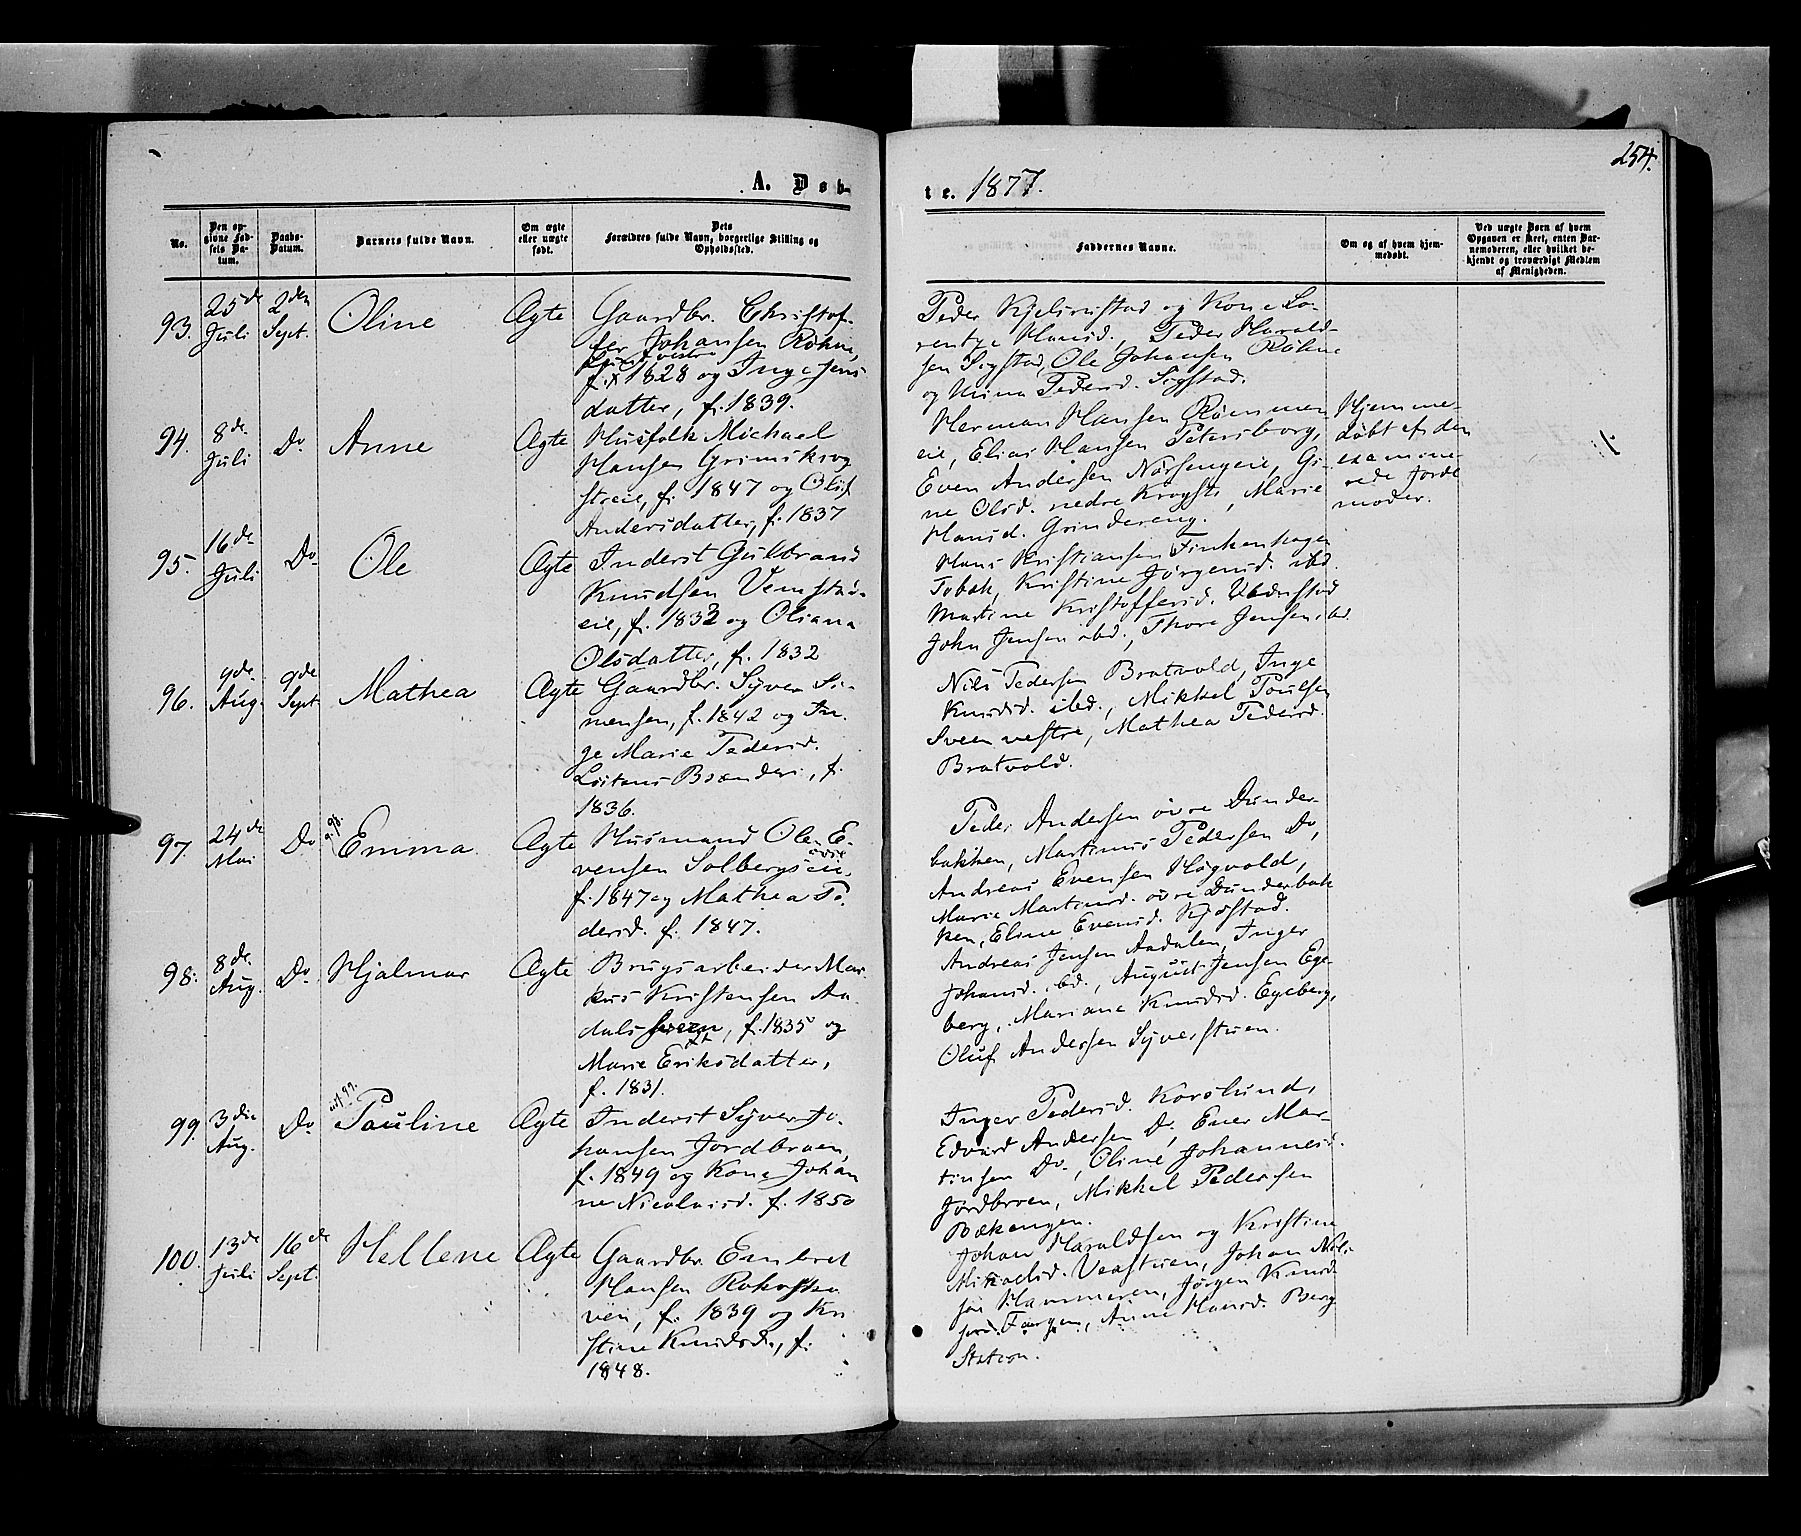 254.
A. Døb-
te. 1877.
No.
Den op-
givne Fød-
sels Da-
tum.
Daabs-
Datum.
Barnets fulde Navn.
Om ægte
eller uægte
født.
Dets
Forældres fulde Navn, borgerlige Stilling og
Opholdssted.
Faddernes Navne.
Om og af hvem hjem-
medøbt.
Ved uægte Børn af hvem
Opgaven er skeet, enten Bar-
nemoderen, eller hvilket be-
kjendt og troværdigt Medlem
af Menigheden.
93.
25de
Juli
2den
Sept.
Oline
Ægte
Gaardbr. Christof-
fer Johansen Røhne,
f. 1828 og Inge Jens-
datter, f. 1839.
Peder Kjelsrustad og Kone Lo-
rentze Hansd., Peder Harald-
sen Sigstad, Ole Johansen Røhne
og Mina Pedersd. Sigstad.
94.
8de
Juli
Do
Anne
Ægte
Husfolk Michael
Hansen Grimskrog
f. 1847 og
Andersdatter, f. 1837
Herman Hansen
eie, Elias Hansen Petersborg,
Even Andersen Gi-
ne Olsd. nedre Marie
Hansd. Grindereng.
Hjemme-
døbt af den
examine-
rede Jorde-
moder.
95.
16de
Juli
Do
Ole
Ægte
Inderst Gulbrand
Knudsen Vemstad-
eie, f. 1832 og Oliana
Olsdatter, f. 1832
Hans Kristiansen Finkenhagen
Kristine Jørgensd. ibd.
Martine Kristoffersd.
John Jensen ibd., Thore Jensen ibd.
96.
9de
Aug.
9de
Sept.
Mathea
Ægte
Gaardbr. Syver Si-
mensen, f. 1842 og In-
ge Marie Pedersd.
Løitens Brænderi, f.
1836.
Nils Pedersen Bratvold, Inge
Knudsd. ibd., Mikkel Poulsen
Sveen vestre, Mathea Pedersd.
Bratvold.
97.
24de
Mai
Do
Emma
Ægte
Husmand Ole E-
vensen Solbergseie,
øvre
f. 1847 og Mathea Pe-
dersd. f. 1847.
Peder Andersen øvre Dunder-
bakken, Martinus Pedersen Do,
Andreas Evensen Høgvold,
Marie Martinsd. øvre Dunderbak-
ken, Eline Evensd. Kjøstad.
98.
8de
Aug.
Do
Hjalmar
Ægte
Brugsarbeider Mar-
kus Kristensen Aa-
dals , f. 1835 og
Marie Eriksdatter,
f. 1831.
Andreas Jensen Aadalen, Inger
Johansd. ibd., August Jensen Ege-
berg, Mariane Knudsd. Egeberg,
Oluf Andersen Syverstuen.
99.
3die
Aug.
Do
Pauline
Ægte
Inderst Syver Jo-
hansen Jordbroen,
f. 1849 og Kone Johan-
ne Nicolaisd. f. 1850
Inger Pedersd. Korslund,
Edvard Andersen Do, Ener Mar-
tinsen Do., Oline Johannesd.
Jordbroen, Mikkel Pedersen
Bækengen.
100.
13de
Juli
16de
Sept.
Hellene
Ægte
Gaardbr. Embret
Hansen
f. 1839 og Kri-
stine Knudsd., f.
1848.
Johan Haraldsen og Kristine
Mikaelsd. Johan Nil-
sen Hammeren, Jørgen Knud-
sen Anne Hansd. Berg
Station.